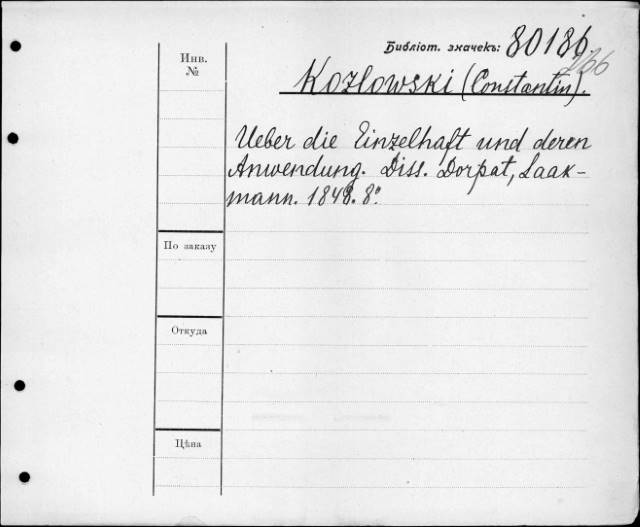 Библіот. значекъ: 80186.
Инв.
№
Kozlowski (Constantin).
Ueber die Einzelhaft und deren
Anwendung. Diss. Dorpat, Laak-
mann. 1848. 8°.
По заказу
Откуда
Цѣна